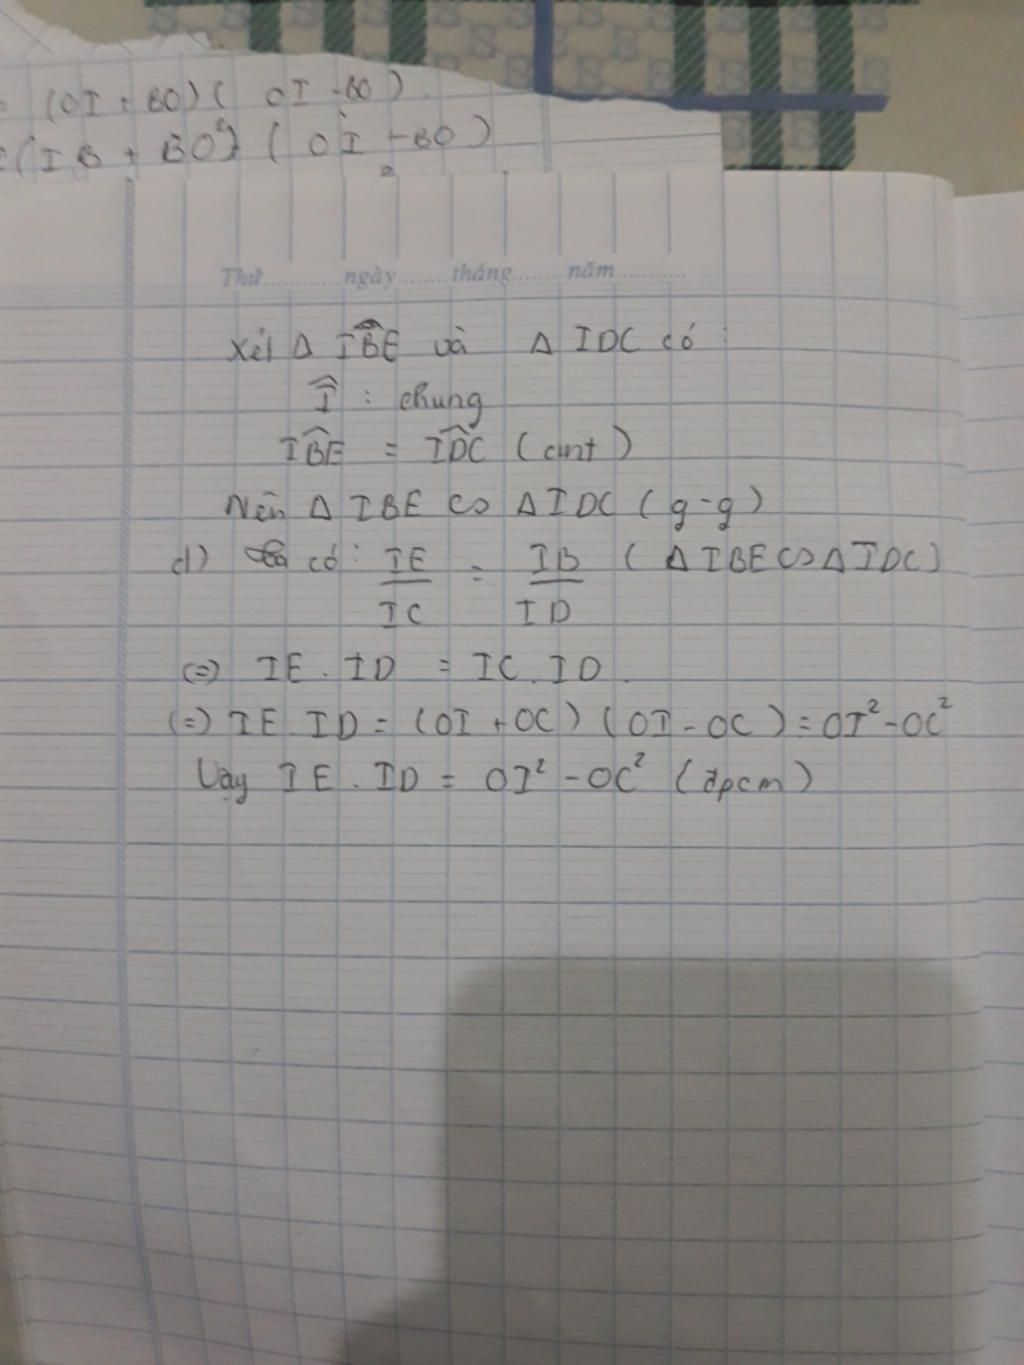 (OI + BO) ( OI - BO )
(IB + BO) ( OI - BO )
2
Thứ............ngày.......tháng.......năm............
Xét Δ IBE và Δ IDC có :
Î : chung
IB̂E = ID̂C ( cmt )
Nên Δ IBE ∽ Δ IDC ( g-g )
d) Ta có : IE/IC = IB/ID ( Δ IBE ∽ Δ IDC )
(=) IE . ID = IC . ID
(=) IE . ID = (OI + OC) (OI - OC) = OI² - OC²
Vậy IE . ID = OI² - OC² ( đpcm )